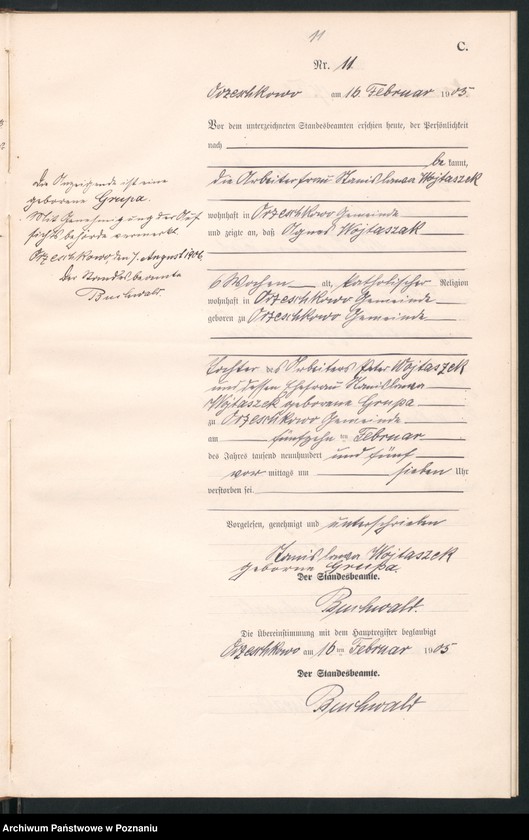 11
C.
Nr. 11
Orzeschkowo am 16. Februar 1905
Vor dem unterzeichneten Standesbeamten erschien heute, der Persönlichkeit
nach
be kannt,
die Arbeiterfrau Stanislawa Wojtaszek
wohnhaft in Orzeschkowo Gemeinde
und zeigte an, daß Agnes Wojtaszak
6 Wochen alt, katholischer Religion
wohnhaft in Orzeschkowo Gemeinde
geboren zu Orzeschkowo Gemeinde
Tochter des Arbeiters Peter Wojtaszek
und dessen Ehefrau Stanislawa
Wojtaszek geborene Grupa
zu Orzeschkowo Gemeinde
am fünfzehn ten Februar
des Jahres tausend neunhundert und fünf
vor mittags um sieben Uhr
verstorben sei.
Vorgelesen, genehmigt und unterschrieben
Stanislawa Wojtaszek
geborne Grupa.
Der Standesbeamte.
Buchwald.
Die Übereinstimmung mit dem Hauptregister beglaubigt
Orzeschkowo am 16 ten Februar 1905
Der Standesbeamte.
Buchwald
Die Anzeigende ist eine
geborene Grupa.
Mit Genehmigung der Auf-
sichtsbehörde vermerkt
Orzeschkowo, den 7. August 1906.
Der Standesbeamte
Buchwald.
Archiwum Państwowe w Poznaniu